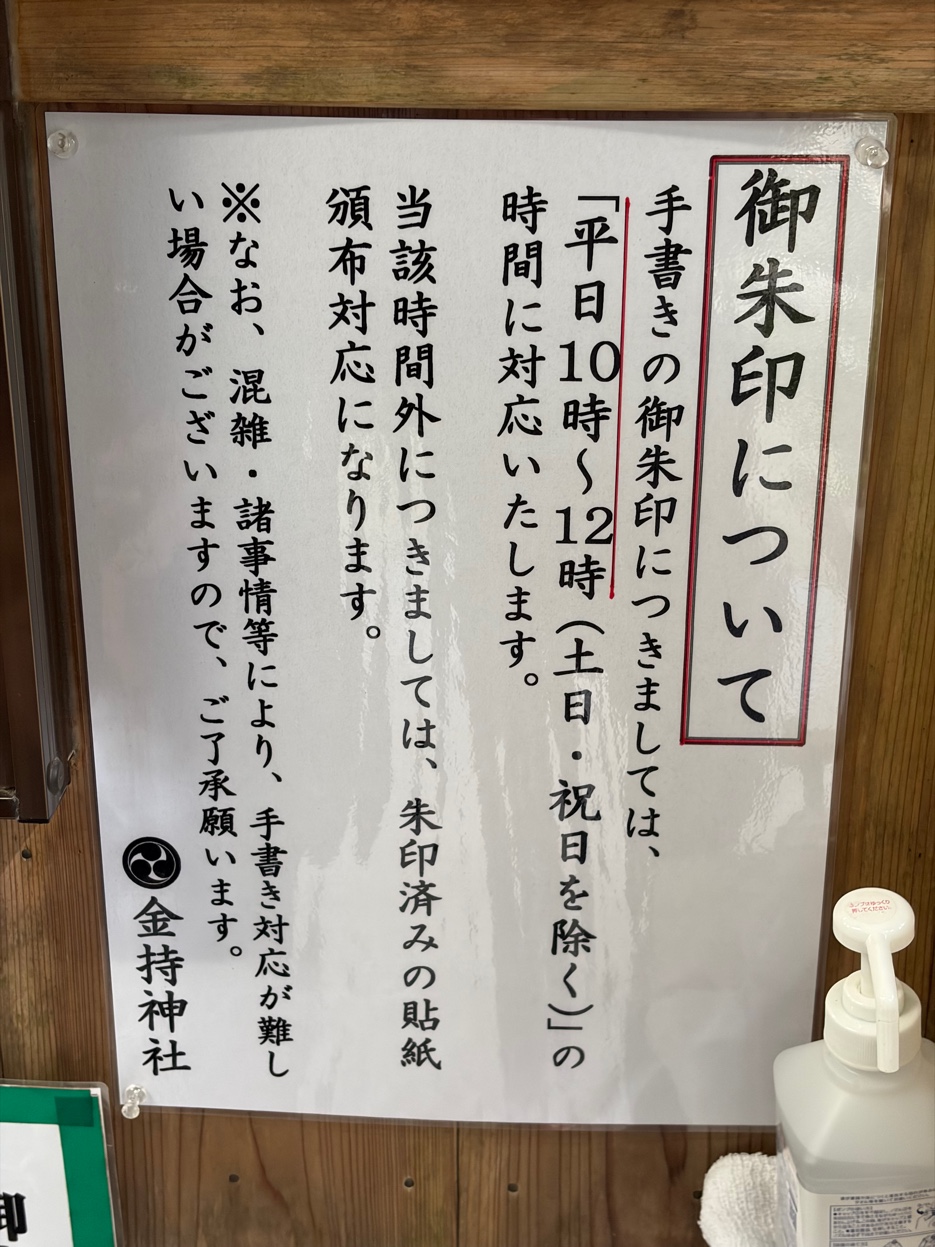 御朱印について
手書きの御朱印につきましては、
「平日10時～12時（土日・祝日を除く）」の
時間に対応いたします。
当該時間外につきましては、朱印済みの貼紙
頒布対応になります。
※なお、混雑・諸事情等により、手書き対応が難し
い場合がございますので、ご了承願います。
金持神社
御